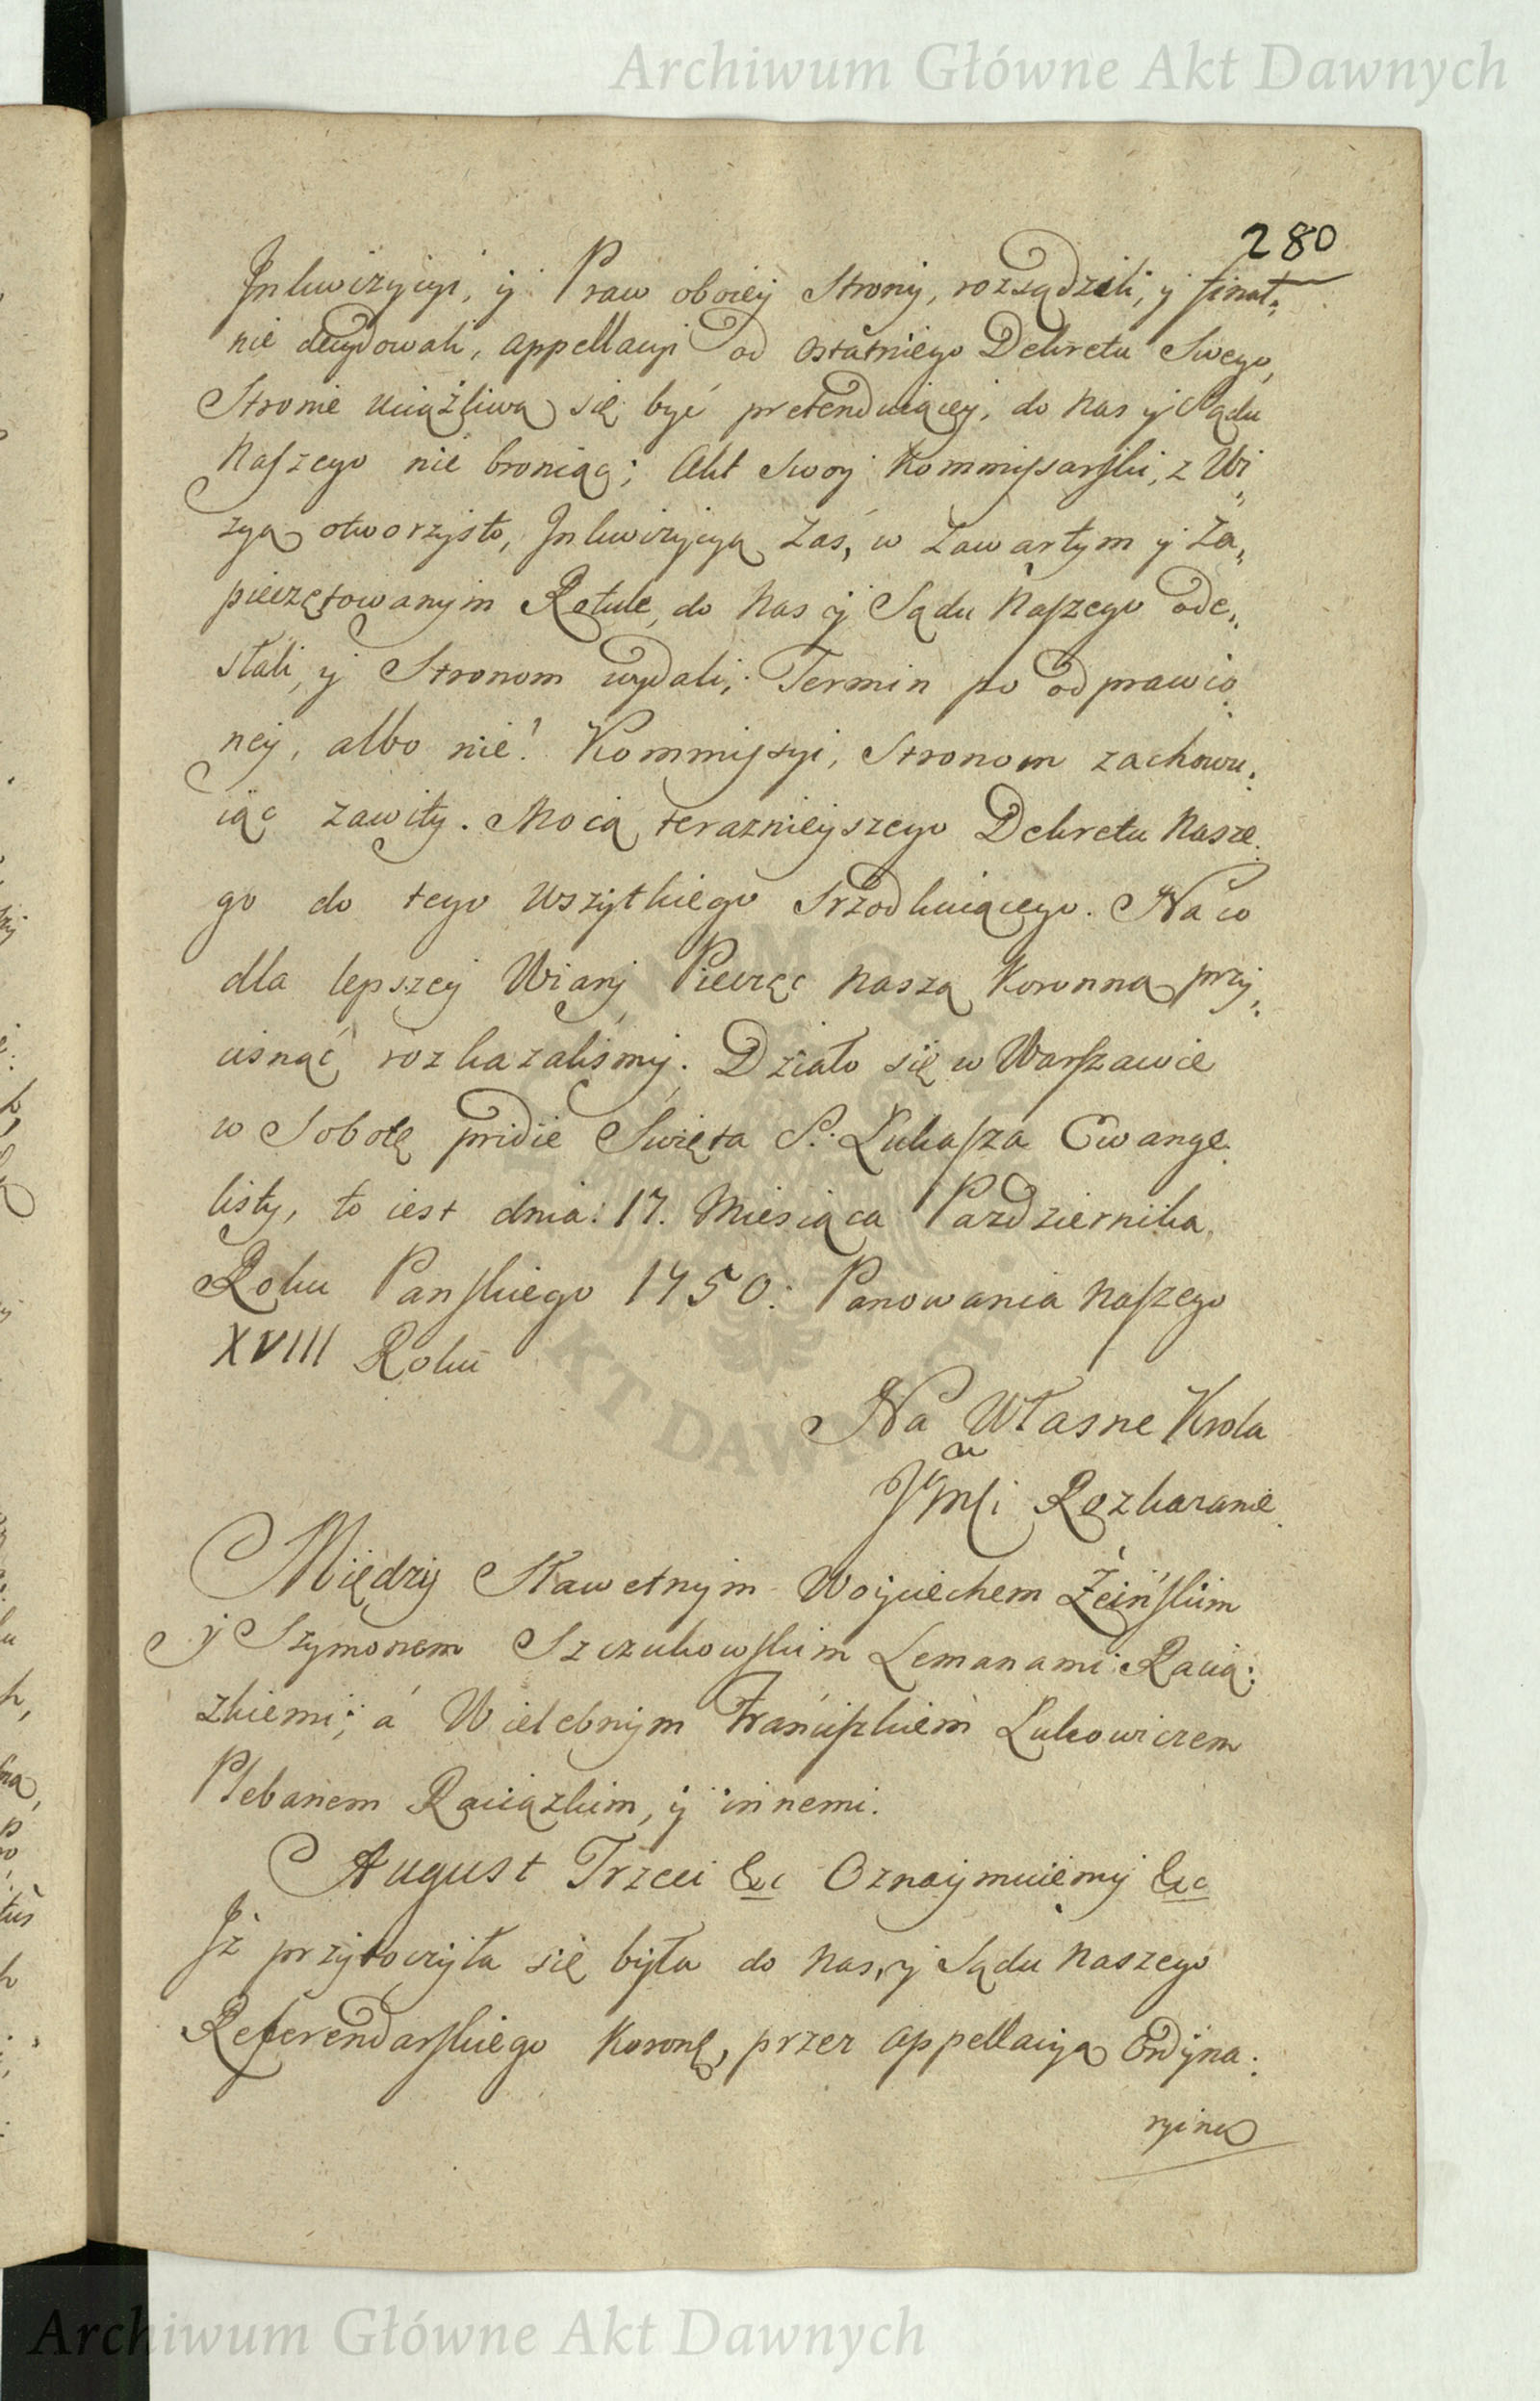 Archiwum Główne Akt Dawnych
280
Inkwizycyi, y Praw oboiey Strony, rozsądzili, y finał„
nie decydowali, appellacyi od ostatniego Dekretu Swego,
Stronie uciążliwą się być pretenduiącey, do Nas y Sądu
Naszego nie broniąc; Akt Swoy Kommissarski, z Wi„
zyą otworzysto, Inkwizycyą Zaś, w Zawartym y Za„
pieczętowanym Rotule, do Nas y Sądu Naszego ode„
słali, y Stronom wydali; Termin po odprawio„
ney, albo nie! Kommissyi, Stronom zachowu„
iąc zawity. Mocą teraznieyszego Dekretu Nasze„
go do tego wszytkiego srzodkuiącego. Na co
dla lepszey Wiary Pieczęć Naszą Koronną przy„
cisnąć rozkazalismy. Działo się w Warszawie
w Sobotę pridie Swięta S. Łukasza Ewange„
listy, to iest dnia: 17. Miesiąca Pazdziernika,
Roku Panskiego 1750: Panowania Naszego
XVIII Roku
Na Własne Krola
JgMsci Rozkazanie.
Między Sławetnym Woyciechem Żeińskim
y Szymonem Szczukowskim Lemanami Racią:
zkiemi; á Wielebnym Franciszkiem Lukowiczem
Plebanem Raciązkim, y innemi.
August Trzeci &c Oznaymuiemy &c
Iż przytoczyła się była do Nas, y Sądu Naszego
Referendarskiego Koronę, przez appellacyą Ordyna:
ryiną
ARCHIWUM GŁÓWNE AKT DAWNYCH
Archiwum Główne Akt Dawnych